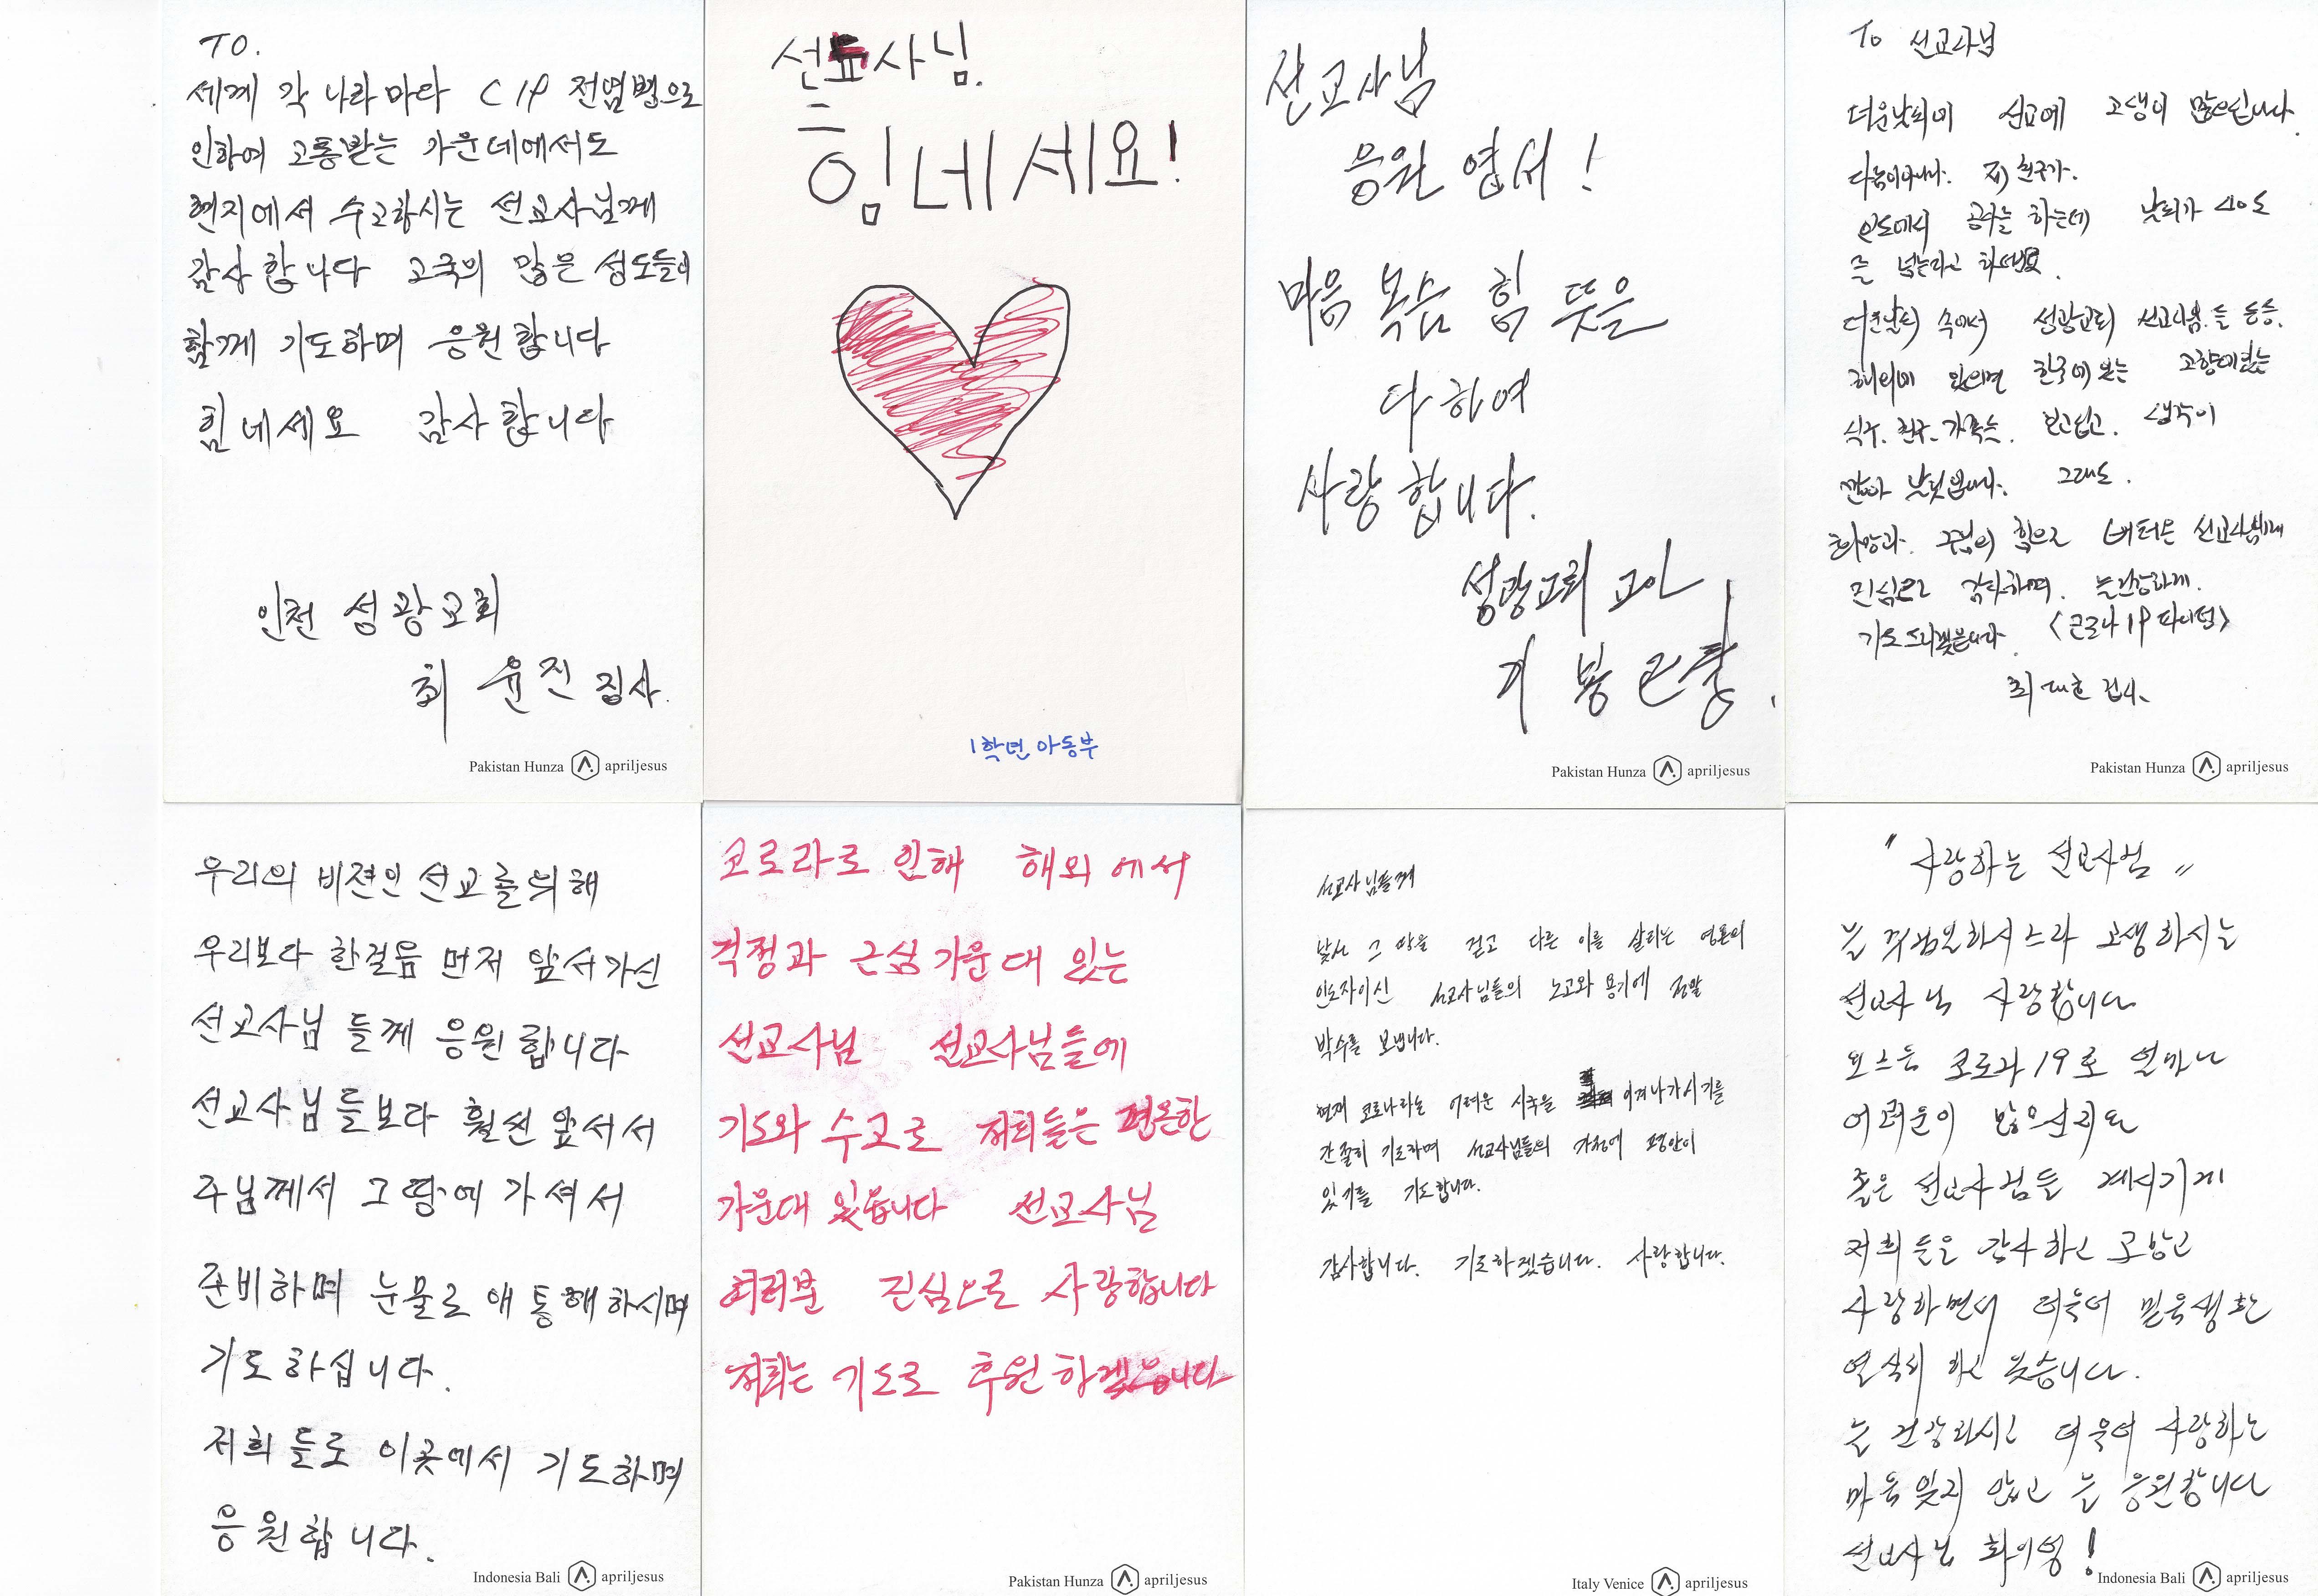 TO.
세계 각 나라마다 C19 전염병으로
인하여 고통받는 가운데에서도
현지에서 수고하시는 선교사님께
감사합니다 고국의 많은 성도들이
함께 기도하며 응원합니다
힘내세요 감사합니다
인천 성광교회
최윤진 집사.
Pakistan Hunza apriljesus
선교사님.
힘네세요!
1학년 아동부
선교사님
응원 엽서!
마음 목숨 힘 뜻을
다하여
사랑합니다.
성광교회
Pakistan Hunza apriljesus
To 선교사님
더운날씨에 선교에 고생이 많으십니다.
다름이아니라. 제 친구가.
인도에서 공부를 하는데 날씨가 40도
를 넘는다고 하네요.
더운날씨 속에서 성광교회 선교사님들
해외에 있으면 한국에 있는
식구. 친구. 가족들. 보고싶고. 생각이
많이 그래도.
힘으로 버티는 선교사님께
진심으로 감사하며. 늘건강하게.
기도드리겠습니다
집사.
Pakistan Hunza apriljesus
우리의 비젼인 선교를위해
우리보다 한걸음 먼저 앞서가신
선교사님 들께 응원합니다
선교사님 들보다 훨씬 앞서서
주님께서 그 땅에 가셔서
준비하며 눈물로 애통해하시며
기도하십니다.
저희 들도 이곳에서 기도하며
응원합니다.
Indonesia Bali apriljesus
코로라로 인해 해외에서
걱정과 근심 가운대 있는
선교사님 선교사님들에
기도와 수고로 저희들은 평온한
가운대 있습니다 선교사님
여러분 진심으로 사랑합니다
저희는 기도로 후원하겠습니다
Pakistan Hunza apriljesus
선교사님들께
낯선 그 땅을 걷고 다른 이를 살리는 영혼의
인도자이신 선교사님들의 노고와 용기에 정말
박수를 보냅니다.
현재 코로나라는 어려운 시국을 이겨나가시기를
간절히 기도하며 선교사님들의 가정에 평안이
있기를 기도합니다.
감사합니다. 기도하겠습니다. 사랑합니다.
Italy Venice apriljesus
"사랑하는 선교사님"
늘 고생하시는
선교사님 사랑합니다
요즈음 코로나19로 얼마나
어려움이 많으신지요
좋은 선교사님들 계시기에
저희들은 감사하고
사랑하면서 더욱더 믿음생활
열심히 하고 있습니다.
늘 건강하시고 더욱더 사랑하는
마음 잊지 않고 늘 응원합니다
선교사님 화이팅!
Indonesia Bali apriljesus